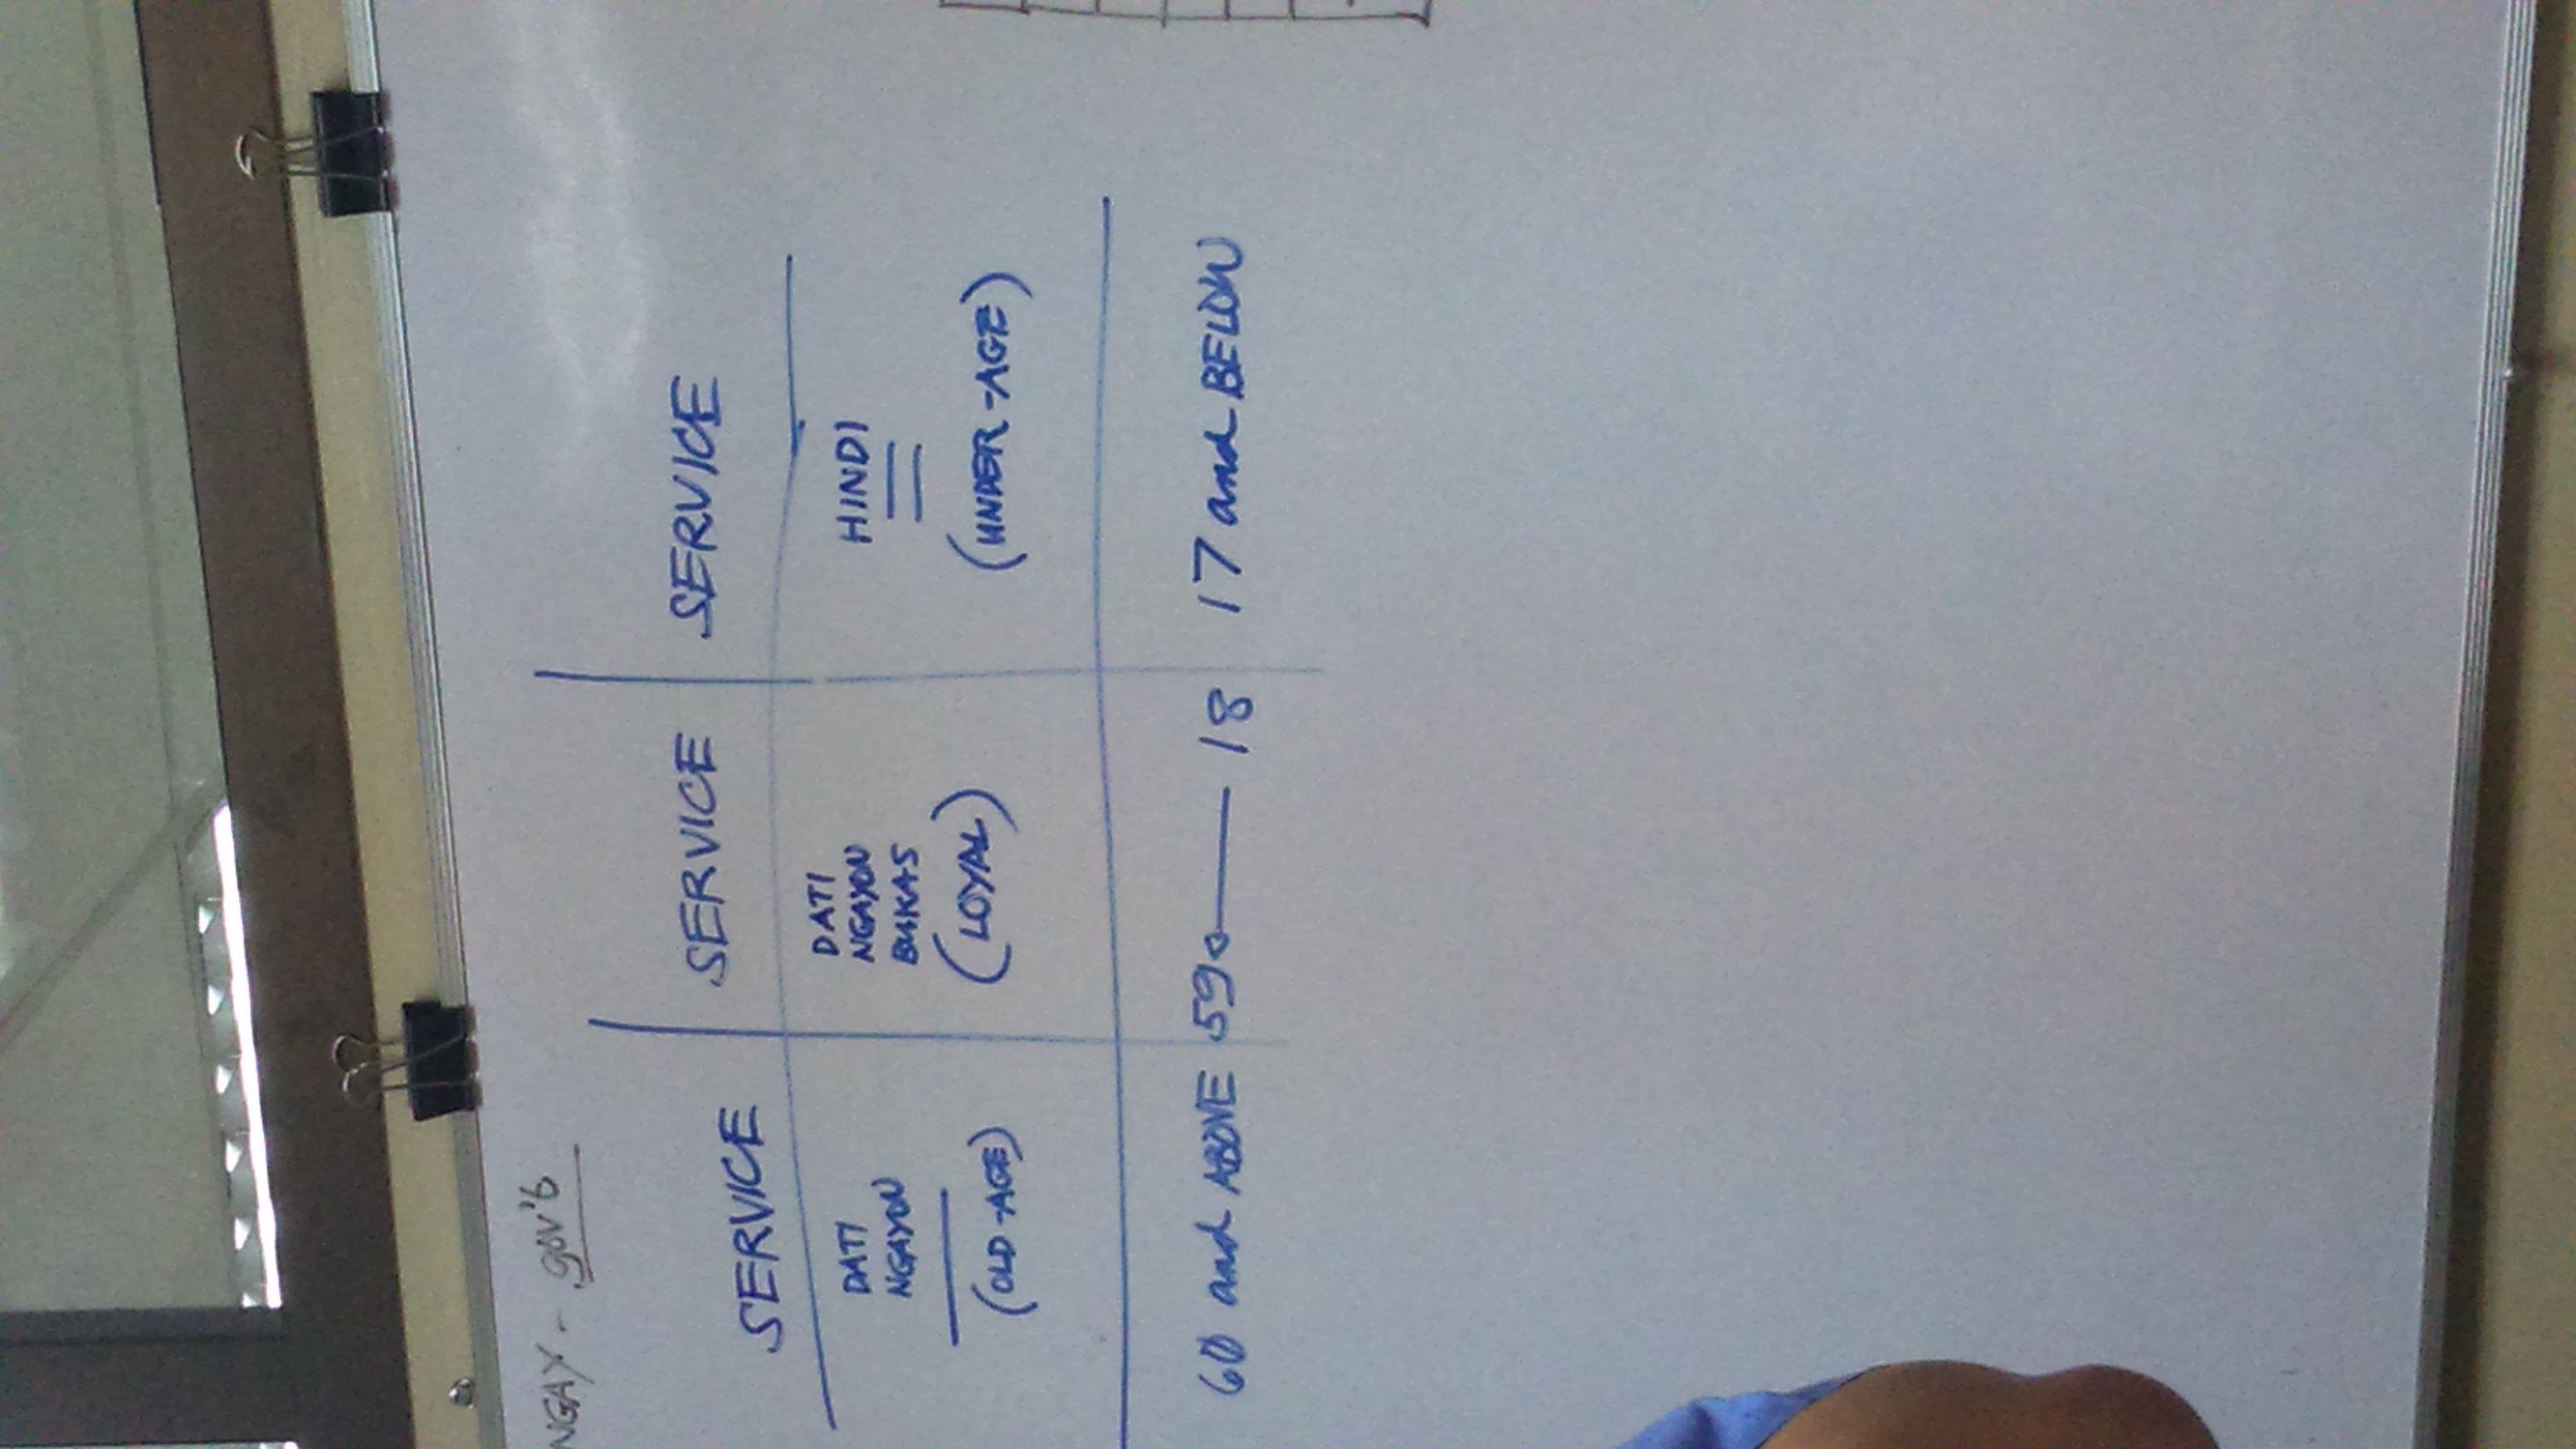 NGAY - gov't
SERVICE SERVICE SERVICE
DATI
NGAYON
(OLD-AGE)
DATI
NGAYON
BUKAS
(LOYAL)
HINDI
(UNDER-AGE)
60 and ABOVE 59 18 17 and BELOW